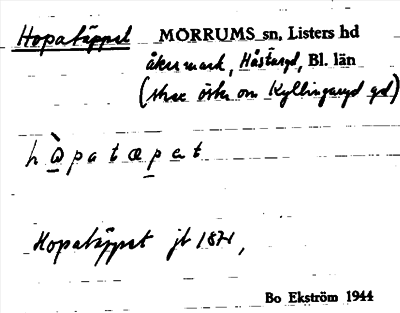 Hopatäppet MÖRRUMS sn, Listers hd
åkermark, Håstaryd, Bl. län
(strax öster om Kyllingaryd gd)
h ò p a t æ p e t
Hopatäppet jb 1871,
Bo Ekström 1944